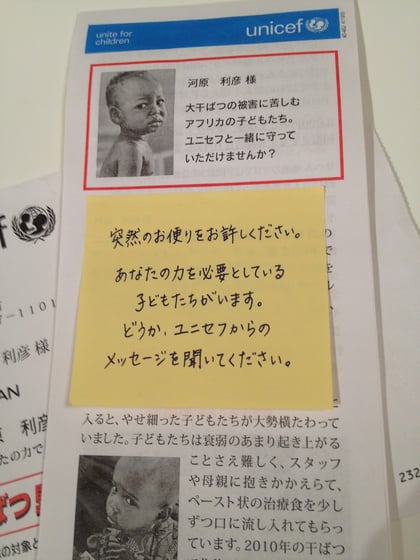 unite for
children
unicef
河原 利彦 様
大干ばつの被害に苦しむ
アフリカの子どもたち。
ユニセフと一緒に守って
いただけませんか？
突然のお便りをお許しください。
あなたの力を必要としている
子どもたちがいます。
どうか、ユニセフからの
メッセージを聞いてください。
入ると、やせ細った子どもたちが大勢横たわって
いました。子どもたちは衰弱のあまり起き上がる
ことさえ難しく、スタッフ
や母親に抱きかかえらて、
ペースト状の治療食を少し
ずつ口に流し入れてもらっ
ています。2010年の干ばつ
7-1101
利彦 様
AN
利彦
たの力で
ばつ
の対象と
232